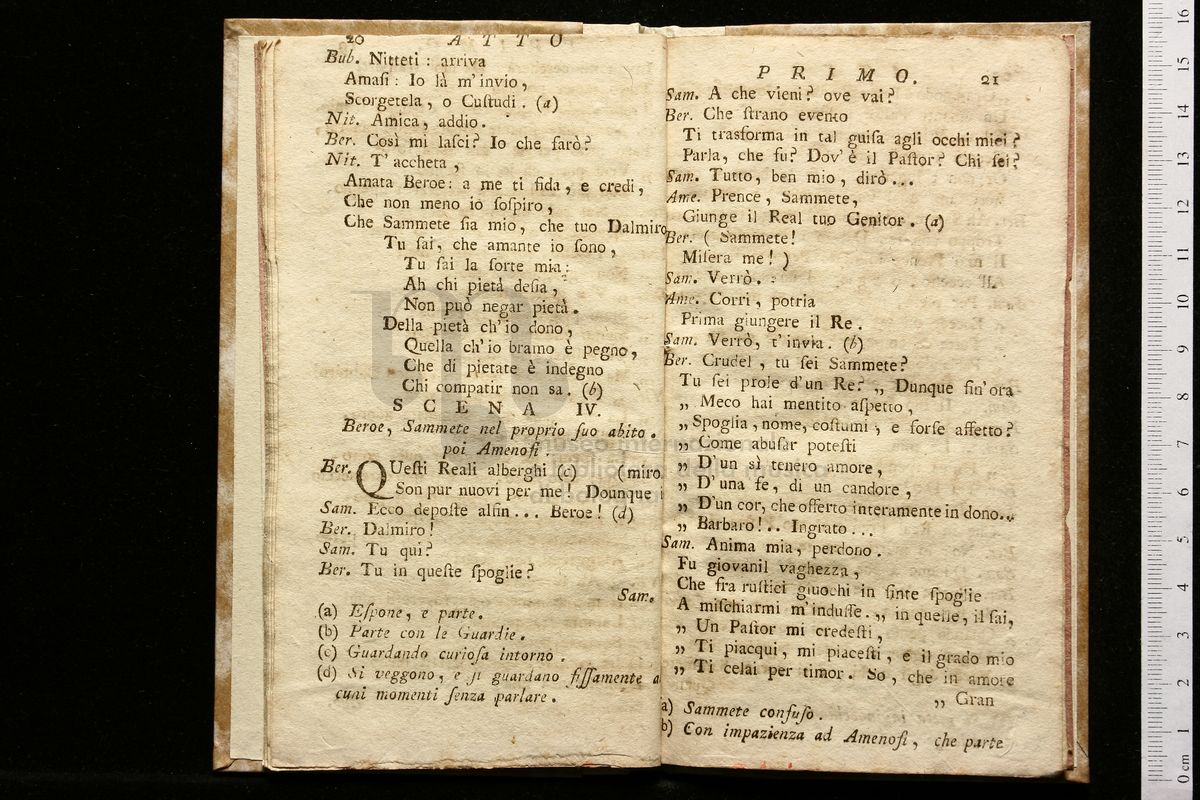 20 A T T O
Bub. Nitteti : arriva
Amaſi : Io là m' invio,
Scorgetela, o Cuſtudi. (a)
Nit. Amica, addio.
Ber. Così mi laſci? Io che farò?
Nit. T' accheta,
Amata Beroe: a me ti fida, e credi,
Che non meno io ſoſpiro,
Che Sammete ſia mio, che tuo Dalmiro.
Tu ſai, che amante io ſono,
Tu ſai la ſorte mia:
Ah chi pietà deſia,
Non può negar pietà.
Della pietà ch' io dono,
Quella ch' io bramo è pegno,
Che di pietate è indegno
Chi compatir non sa. (b)
S C E N A IV.
Beroe, Sammete nel proprio ſuo abito.
poi Amenofi.
Ber. QUeſti Reali alberghi (c) (miro
Son pur nuovi per me! Dounque
Sam. Ecco depoſte alfin... Beroe! (d)
Ber. Dalmiro!
Sam. Tu qui?
Ber. Tu in queſte ſpoglie?
Sam.
(a) Eſpone, e parte.
(b) Parte con le Guardie.
(c) Guardando curioſa intorno.
(d) Si veggono, e ſi guardano fiſſamente
cuni momenti ſenza parlare.
P R I M O. 21
Sam. A che vieni? ove vai?
Ber. Che ſtrano evento
Ti trasforma in tal guiſa agli occhi miei?
Parla, che fu? Dov' è il Paſtor? Chi ſei?
Sam. Tutto, ben mio, dirò...
Ame. Prence, Sammete,
Giunge il Real tuo Genitor. (a)
Ber. ( Sammete!
Miſera me! )
Sam. Verrò.
Ame. Corri, potria
Prima giungere il Re.
Sam. Verrò, t' invia. (b)
Ber. Crudel, tu ſei Sammete?
Tu ſei prole d'un Re? „ Dunque fin' ora
„ Meco hai mentito aſpetto,
„ Spoglia, nome, coſtumi, e forſe affetto?
„ Come abuſar poteſti
„ D'un sì tenero amore,
„ D' una fe, di un candore,
„ D'un cor, che offerto interamente in dono...
„ Barbaro!.. Ingrato...
Sam. Anima mia, perdono.
Fu giovanil vaghezza,
Che fra ruſtici giuochi in finte ſpoglie
A miſchiarmi m'induſſe. „ in quelle, il ſai,
„ Un Paſtor mi credeſti,
„ Ti piacqui, mi piaceſti, e il grado mio
„ Ti celai per timor. So, che in amore
„ Gran
a) Sammete confuſo.
b) Con impazienza ad Amenofi, che parte